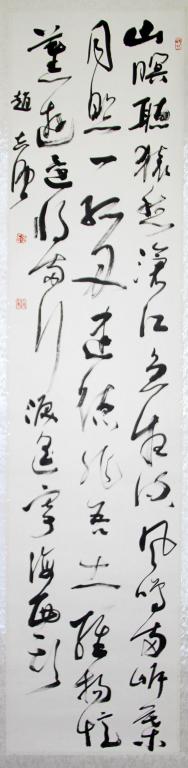 山暝聽猿愁滄江急夜流風鳴兩岸葉
月照一孤舟建德非吾土維揚憶
舊遊還將兩行淚遙寄海西頭
趙